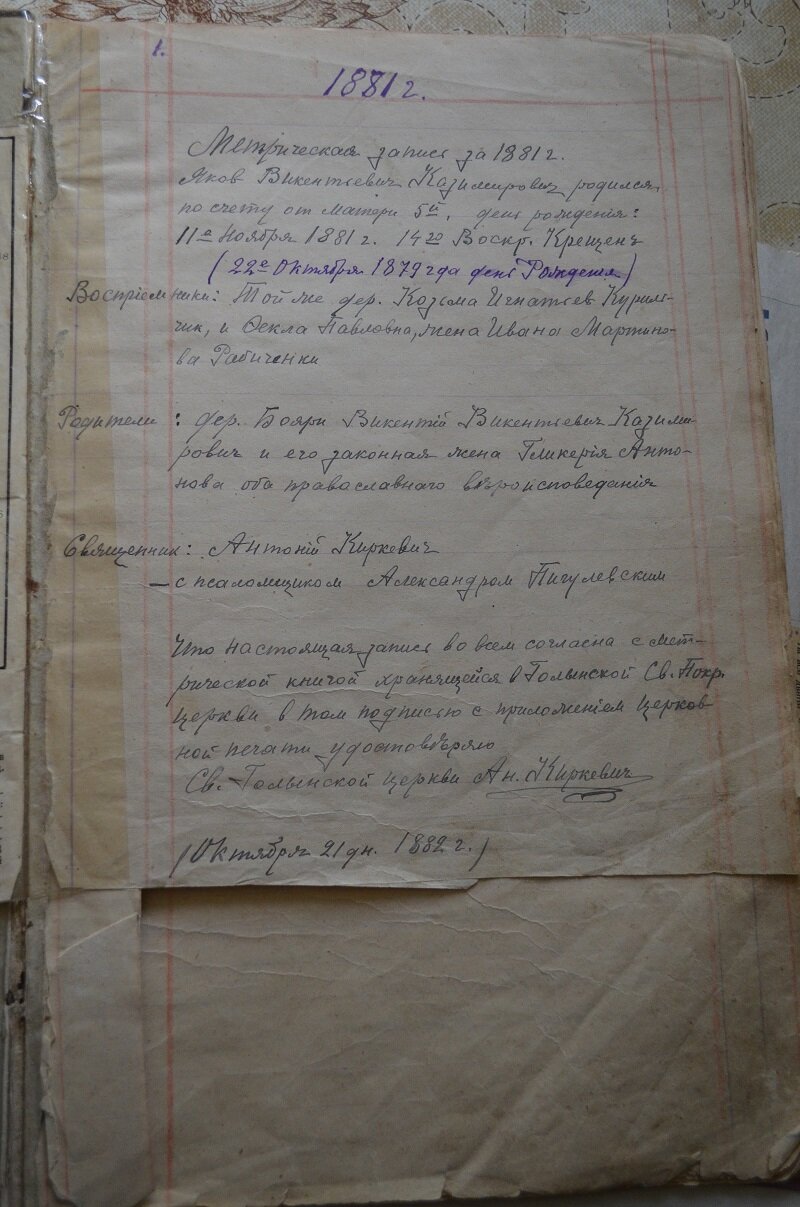 1.
1881 г.
Метрическая запись за 1881 г.
Яков Викентьевич Казимирович родился
по счету от матери 5й, день рождения:
11го Ноября 1881 г. 14го Воскр. Крещен
(22е Октября 1879 года день Рождения)
Восприемники: Той же дер. Козьма Игнатьев Куриль-
чик, и Фекла Павловна, жена Ивана Мартино-
ва Рабиченки
Родители: дер. Бояры Викентій Викентьевич Казими-
рович и его законная жена Гликерія Анто-
нова оба православнаго вѣроисповеданія
Священник: Антоній Киркевич
— с псаломщиком Александром Пигулевским
Что настоящая запись во всем согласна с мет-
рической книгой хранящейся в Голынской Св. Покр.
церкви в том подписью с приложением церков
ной печати удостовѣряю
Св. Голынской церкви Ан. Киркевич
(Октября 21 дн. 1882 г.)